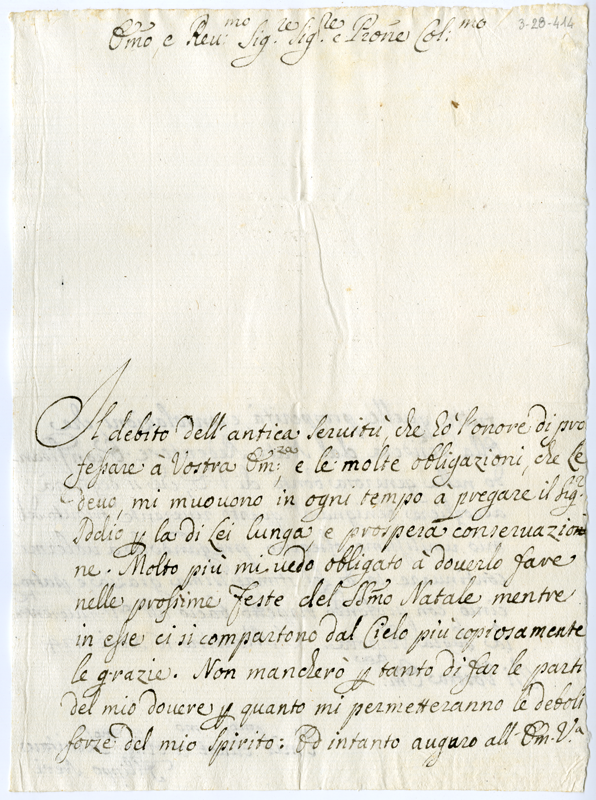 3-28-414
Em̃o, e Reu:mo Sig.re Sig.re e Pron̄e Col:mo
Il debito dell'antica seruitù, che hò l'onore di pro
fessare à Vostra Em:za e le molte obligazioni, che Le
deuo, mi muouono in ogni tempo a pregare il Sig.r
Iddio p la di Lei lunga, e prospera conseruazion
ne. Molto più mi uedo obligato à douerlo fare
nelle prossime feste del SSm̃o Natale mentre
in esse ci si compartono dal Cielo più copiosamente
le grazie. Non mancherò p tanto di far le parti
del mio douere p quanto mi permetteranno le deboli
forze del mio spirito: Ed intanto auguro all'Em. V.a